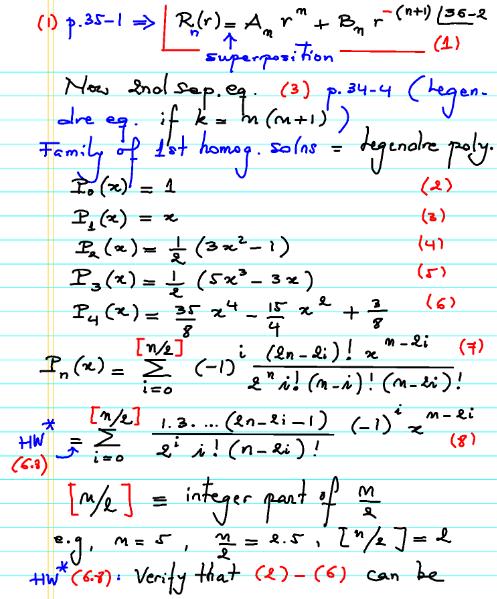 (1) p.35-1 ⇒ R_n(r) = A_n r^n + B_n r^{-(n+1)} [36-2
superposition (1)
Now 2nd sep. eq. (3) p.34-4 (Legen-
dre eq. if k = n(n+1))
Family of 1st homog. solns = Legendre poly.
P_0(x) = 1 (2)
P_1(x) = x (3)
P_2(x) = 1/2 (3x^2 - 1) (4)
P_3(x) = 1/2 (5x^3 - 3x) (5)
P_4(x) = 35/8 x^4 - 15/4 x^2 + 3/8 (6)
P_n(x) = ∑_{i=0}^{[n/2]} (-1)^i (2n-2i)! x^{n-2i} / 2^n i! (n-i)! (n-2i)! (7)
HW* (6.8) = ∑_{i=0}^{[n/2]} 1.3. ... (2n-2i-1) / 2^i i! (n-2i)! (-1)^i x^{n-2i} (8)
[n/2] = integer part of n/2
e.g., n = 5, n/2 = 2.5, [n/2] = 2
HW* (6.8): Verify that (2)-(6) can be